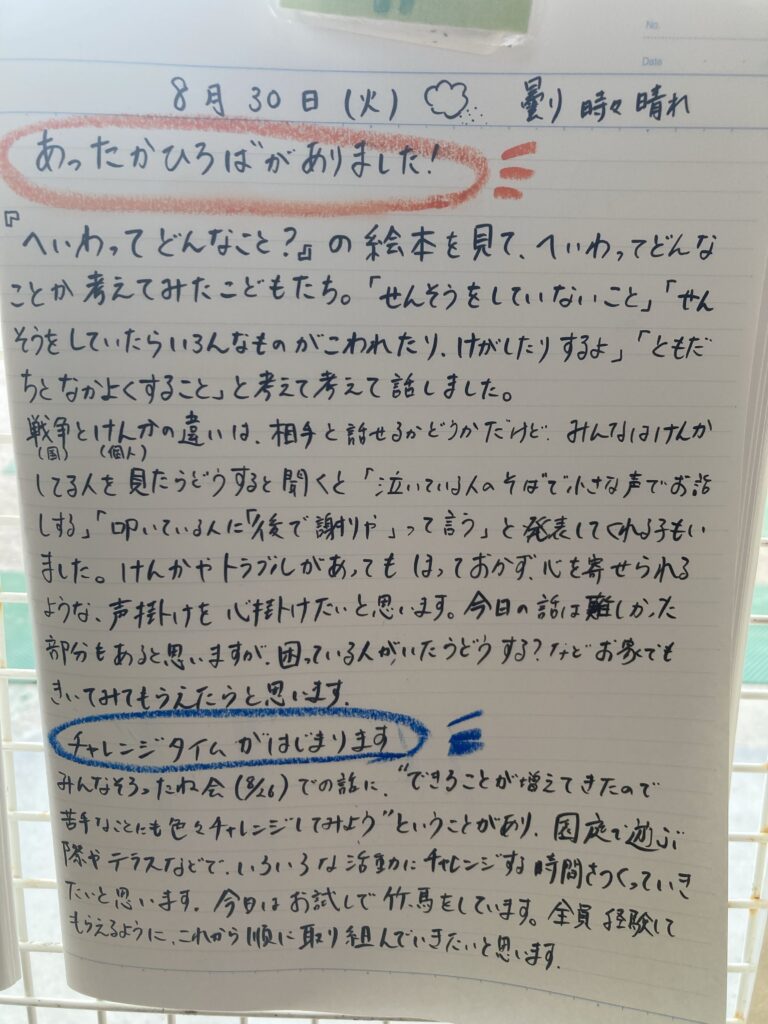 No.
Date
8月30日(火) 曇り 時々 晴れ
あったかひろばがありました!
『へいわってどんなこと?』の絵本を見て、へいわってどんな
ことか考えてみたこどもたち。「せんそうをしていないこと」「せん
そうをしていたらいろんなものがこわれたり、けがしたりするよ」「ともだ
ちとなかよくすること」と考えて考えて話しました。
戦争とけんかの違いは、相手と話せるかどうかだけど、みんなはけんか
(国) (個人)
してる人を見たらどうすると聞くと「泣いている人のそばで小さな声でお話
しする」「叩いている人に「後で謝りや」って言う」と発表してくれる子もい
ました。けんかやトラブルがあってもほっておかず、心を寄せられる
ような、声掛けを心掛けたいと思います。今日の話は難しかった
部分もあると思いますが、困っている人がいたらどうする?などお家でも
きいてみてもらえたらと思います。
チャレンジタイムがはじまります
みんなそろったね会(8/26)での話に、"できることが増えてきたので
苦手なことにも色々チャレンジしてみよう"ということがあり、園庭で遊ぶ
際やテラスなどで、いろいろな活動にチャレンジする時間をつくっていき
たいと思います。今日はお試しで竹馬をしています。全員経験して
もらえるように、これから順に取り組んでいきたいと思います。